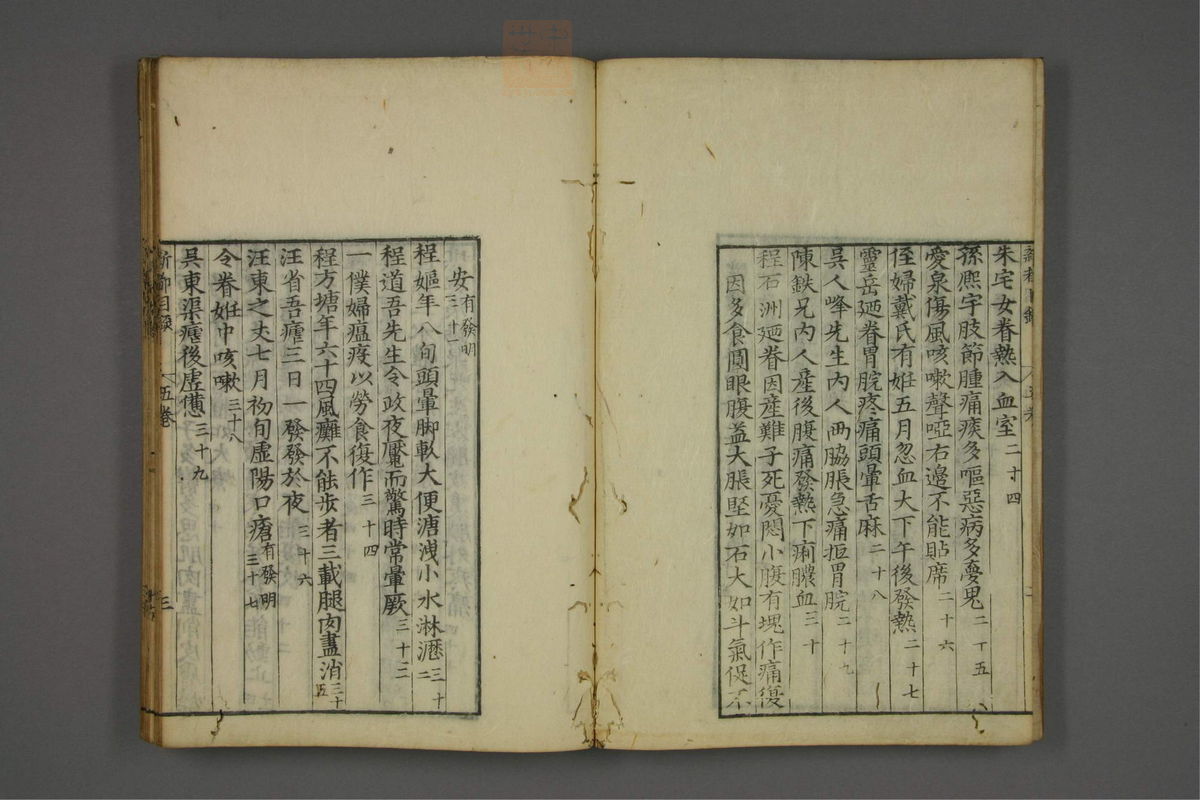 朱宅女眷熱入血室二十四
孫熈宇肢節腫痛痰多嘔惡病多憂思二十五
愛泉傷風咳嗽聲啞右邊不能貼席二十六
侄婦戴氏有妊五月忽血大下午後發熱二十七
靈岳廼眷胃脘疼痛頭暈舌麻二十八
吳人峰先生內人兩脇脹急痛拒胃脘二十九
陳鉄兄內人産後腹痛發熱下痢膿血三十
程石洲廼眷因産難子死憂悶小腹有塊作痛復
因多食圓眼腹益大脹堅如石大如斗氣促不
安有發明三十一
程嫗年八旬頭暈脚軟大便溏溲小水淋瀝三十二
程道吾先生令政夜魘而驚時常暈厥三十三
一僕婦瘟疫以勞食復作三十四
程方塘年六十四風癱不能步者三載腿肉盡消三十五
汪省吾瘧三日一發發於夜三十六
汪東之丈七月初旬虛陽口瘡有發明三十七
令眷妊中咳嗽三十八
吳東渠瘧後虛憊三十九
新都目錄
五卷
三